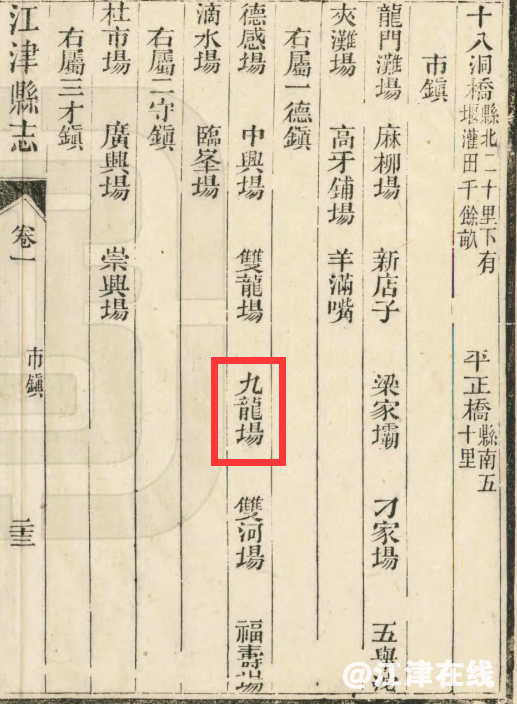 十八洞橋縣北二十里下有堰灌田千餘畝 平正橋縣南五十里
市鎮
龍門灘場 麻柳場 新店子 梁家壩 刁家場 五
夾灘場 高牙鋪場 羊滿嘴
右屬一德鎮
德感場 中興場 雙龍場 九龍場 雙河場 福壽場
滴水場 臨峯場
右屬二守鎮
杜市場 廣興場 崇興場
右屬三才鎮
江津縣志
卷一
市鎮
二十三
@江津在线